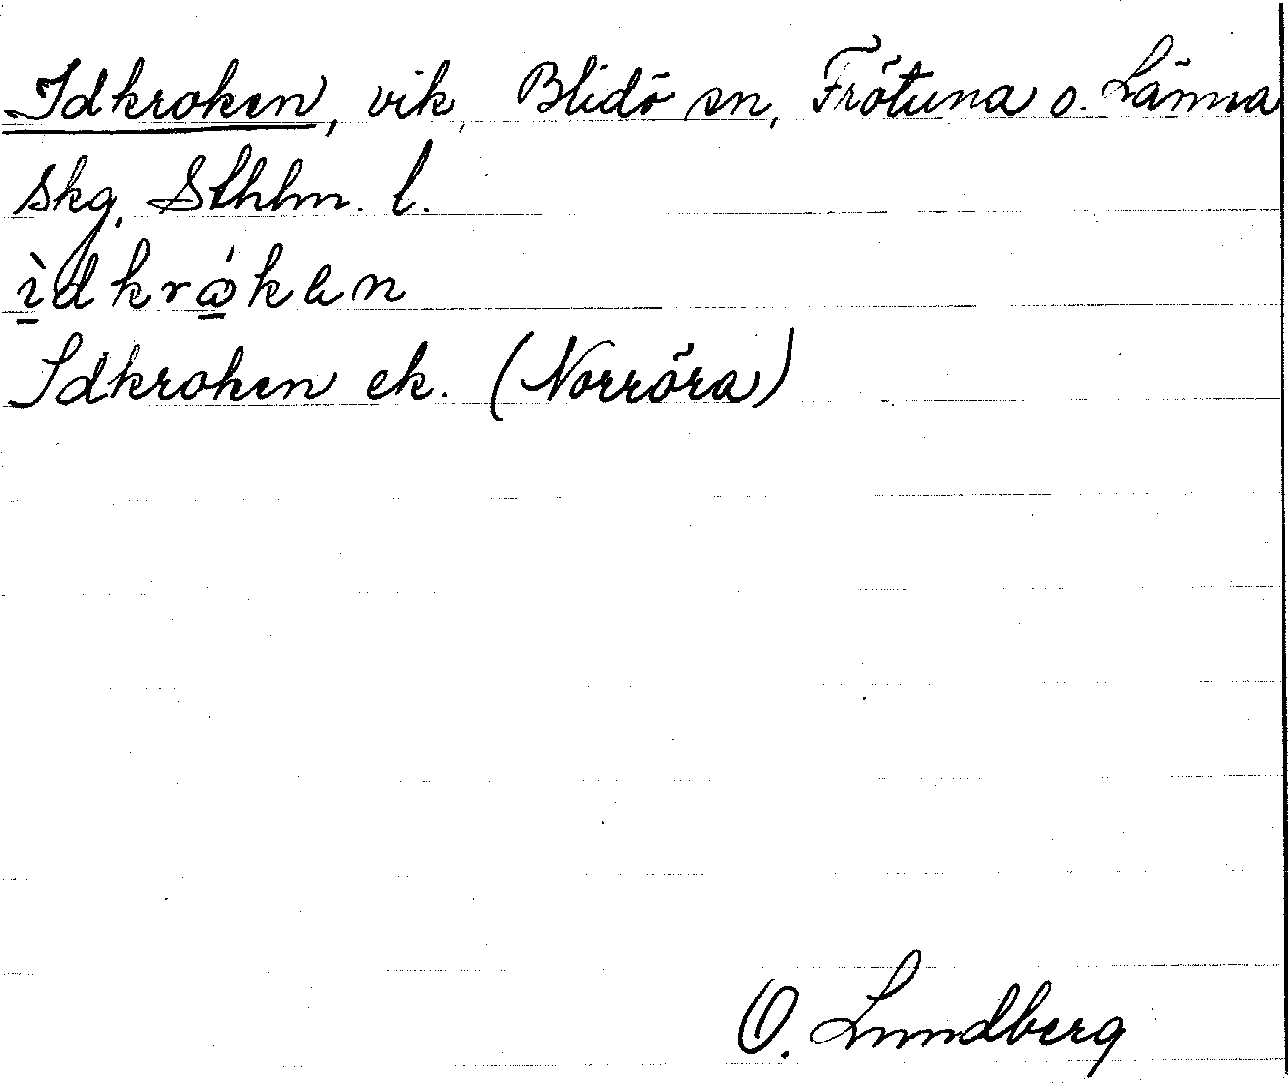 Idkroken, vik, Blidö sn, Frötuna o. Länna
skg, Sthlm. l.
ìdkrώ̲kɐn
Idkroken ek. (Norröra)
O. Lundberg